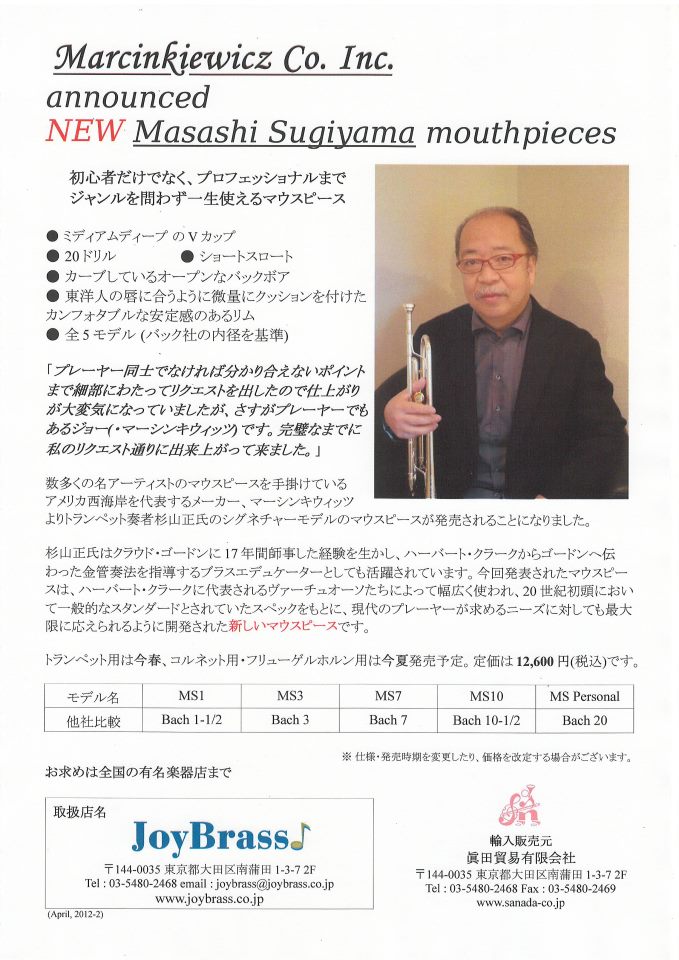 Marcinkiewicz Co. Inc.
announced
NEW Masashi Sugiyama mouthpieces
初心者だけでなく、プロフェッショナルまで
ジャンルを問わず一生使えるマウスピース
● ミディアムディープ の V カップ
● 20ドリル ● ショートスロート
● カーブしているオープンなバックボア
● 東洋人の唇に合うように微量にクッションを付けた
カンフォタブルな安定感のあるリム
● 全5モデル (バック社の内径を基準)
「プレーヤー同士でなければ分かり合えないポイント
まで細部にわたってリクエストを出したので仕上がり
が大変気になっていましたが、さすがプレーヤーでも
あるジョー(・マーシンキウィッツ)です。完璧なまでに
私のリクエスト通りに出来上がって来ました。」
数多くの名アーティストのマウスピースを手掛けている
アメリカ西海岸を代表するメーカー、マーシンキウィッツ
よりトランペット奏者杉山正氏のシグネチャーモデルのマウスピースが発売されることになりました。
杉山正氏はクラウド・ゴードンに17年間師事した経験を生かし、ハーバート・クラークからゴードンへ伝
わった金管奏法を指導するブラスエデュケーターとしても活躍されています。今回発表されたマウスピー
スは、ハーバート・クラークに代表されるヴァーチュオーソたちによって幅広く使われ、20世紀初頭におい
て一般的なスタンダードとされていたスペックをもとに、現代のプレーヤーが求めるニーズに対しても最大
限に応えられるように開発された新しいマウスピースです。
トランペット用は今春、コルネット用・フリューゲルホルン用は今夏発売予定。定価は12,600円(税込)です。
モデル名 MS1 MS3 MS7 MS10 MS Personal
他社比較 Bach 1-1/2 Bach 3 Bach 7 Bach 10-1/2 Bach 20
※ 仕様・発売時期を変更したり、価格を改定する場合がございます。
お求めは全国の有名楽器店まで
取扱店名
JoyBrass
〒144-0035 東京都大田区南蒲田 1-3-7 2F
Tel : 03-5480-2468 email : joybrass@joybrass.co.jp
www.joybrass.co.jp
(April, 2012-2)
輸入販売元
眞田貿易有限会社
〒144-0035 東京都大田区南蒲田 1-3-7 2F
Tel : 03-5480-2468 Fax : 03-5480-2469
www.sanada-co.jp